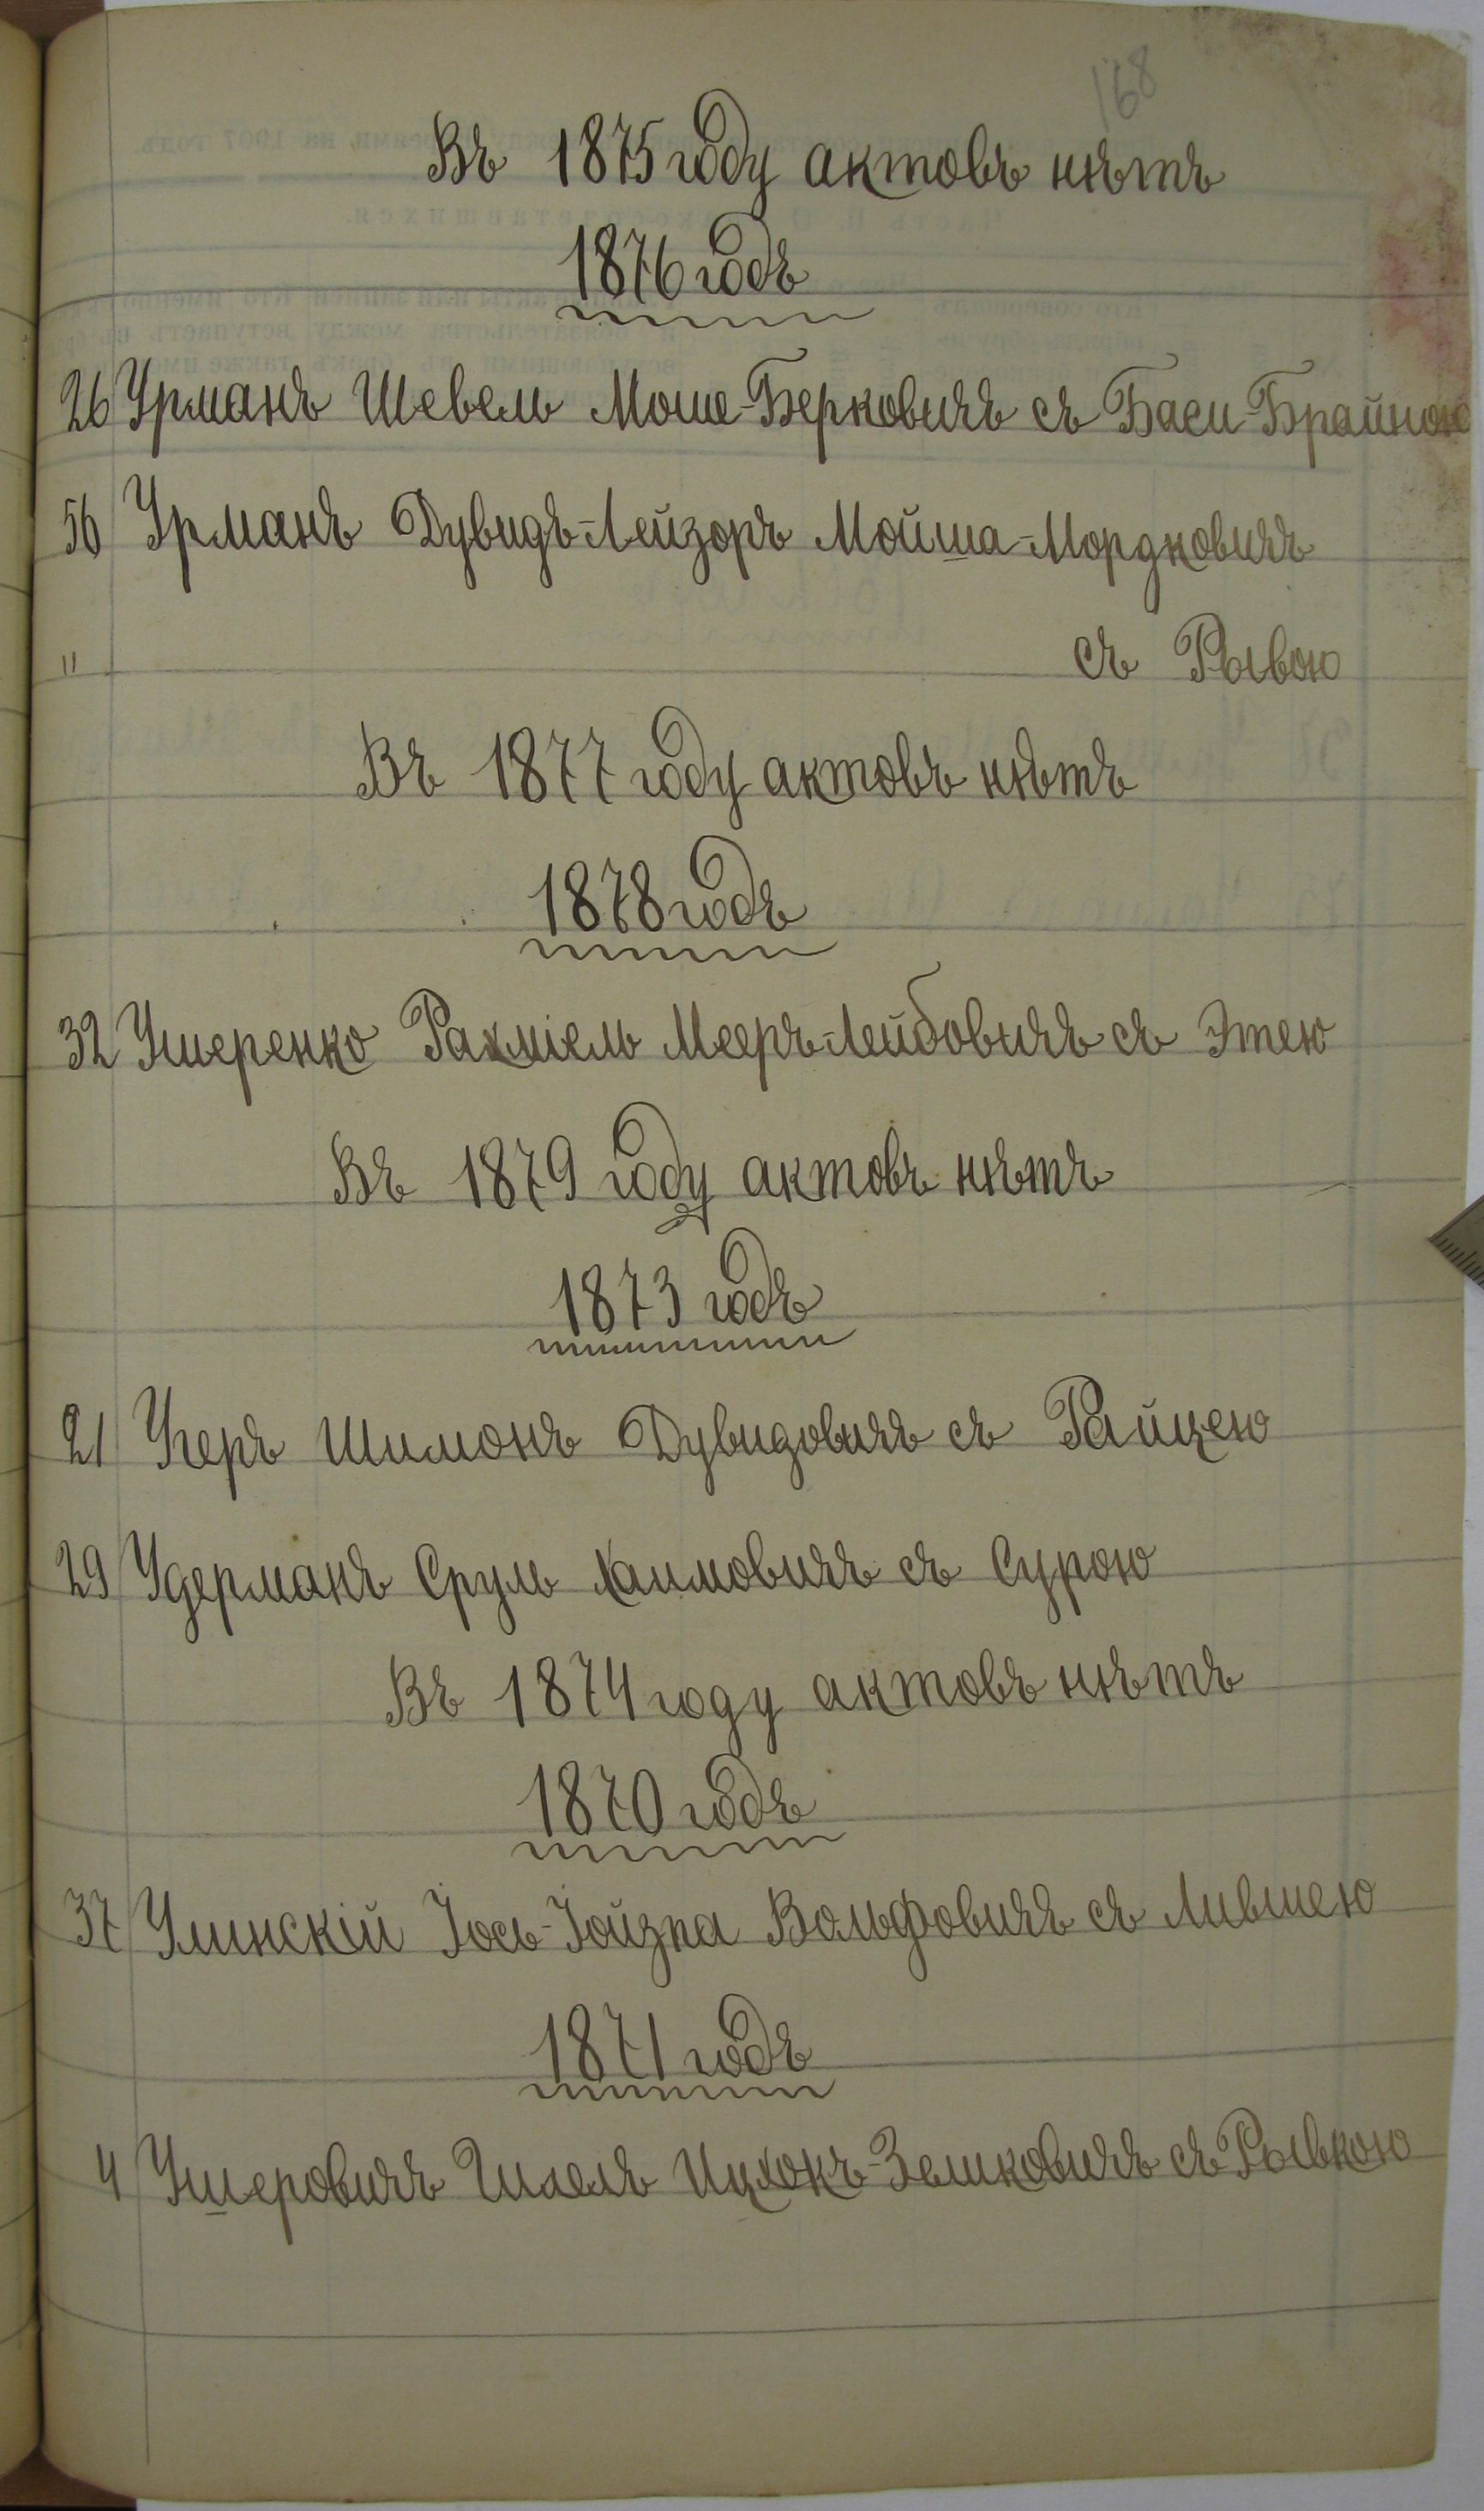 168
Въ 1875 году актовъ нѣтъ
1876 годъ
26 Урманъ Шевель Моше-Берковичъ съ Баси-Брайною
56 Урманъ Дувидъ-Лейзоръ Мойша-Мордковичъ
" съ Рывою
Въ 1877 году актовъ нѣтъ
1878 годъ
32 Ушеренко Рахміель Мееръ-Лейбовичъ съ Этею
Въ 1879 году актовъ нѣтъ
1873 годъ
21 Угеръ Шимонъ Дувидовичъ съ Райцею
29 Удерманъ Сруль Хаимовичъ съ Сурою
Въ 1874 году актовъ нѣтъ
1870 годъ
37 Улинскій Іось-Іойзпа Вольфовичъ съ Лившею
1871 годъ
4 Ушеровичъ Шлель Ицхокъ-Зеликовичъ съ Рывкою